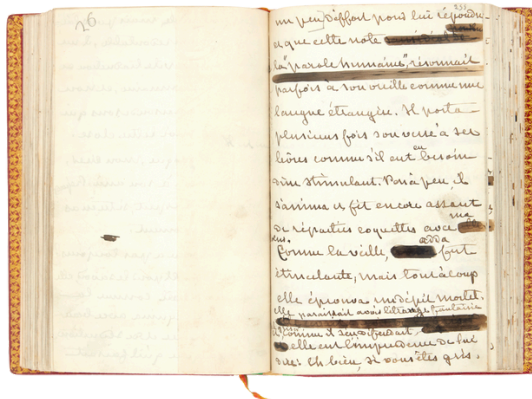 26
un peu d'effort pour lui répondre
et que cette note
la "parole humaine", résonnait
parfois à son oreille comme une
langue étrangère. Il porta
plusieurs fois son verre à ses
lèvres comme s'il eut eu besoin
d'un stimulant. Peu à peu, il
s'anima et fit encore assaut
de réparties coquettes avec
Comme la veille, fut
étincelante, mais tout à coup
elle éprouva un dépit mortel.
elle paraissait avoir l'étrange fantaisie
comme il s'en défendait
elle eut l'imprudence de lui
dire: Eh bien, si vous êtes gris,